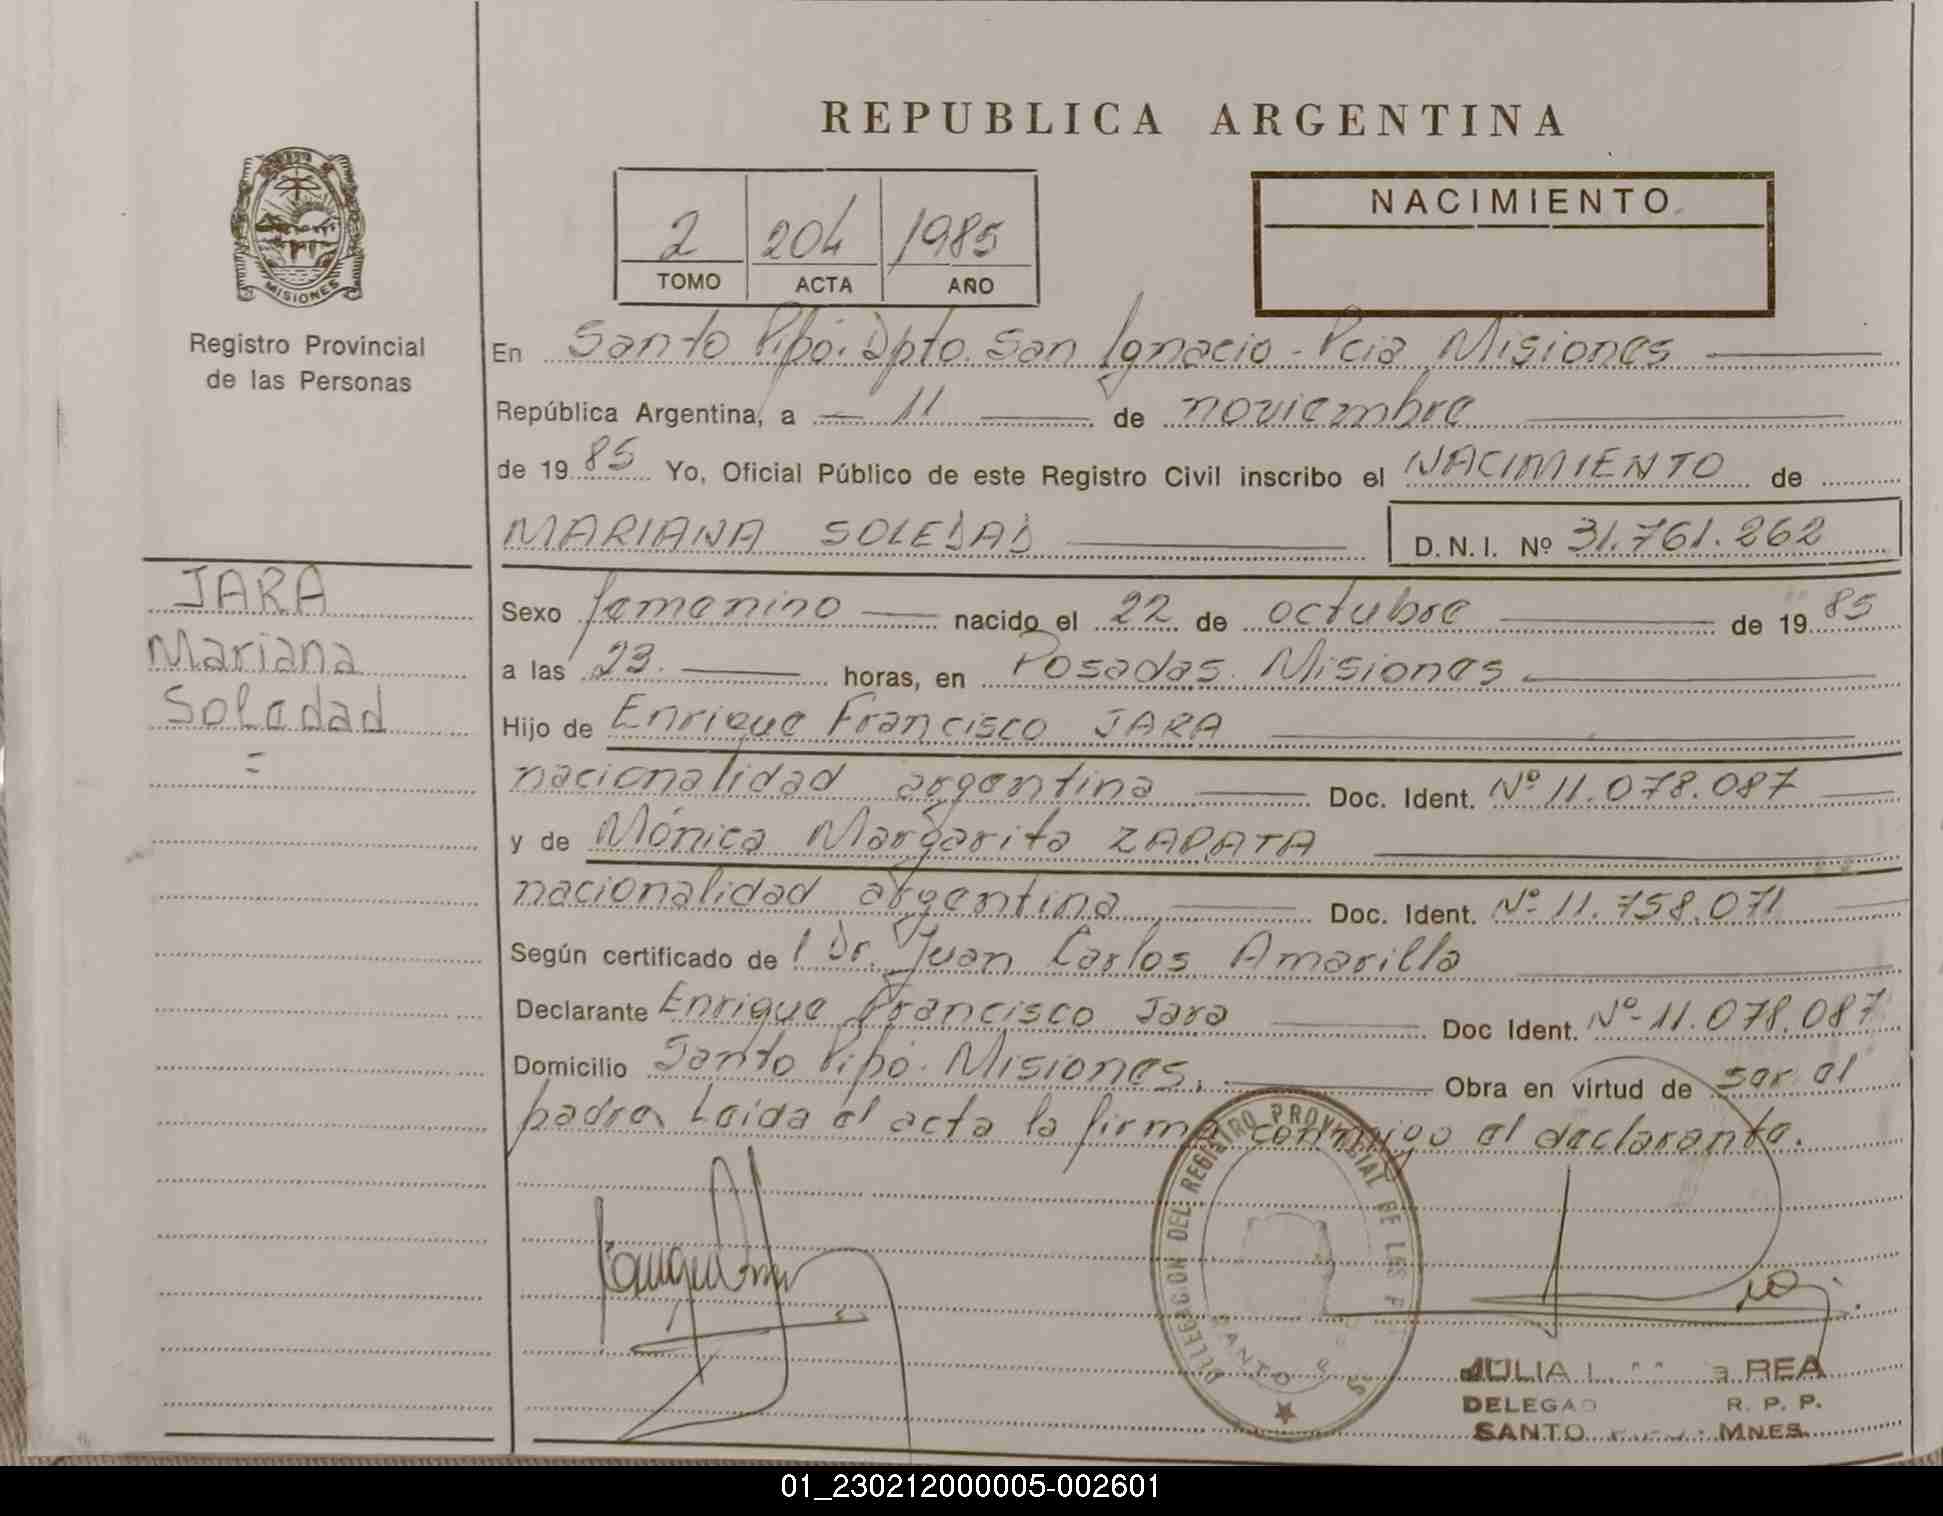 REPUBLICA ARGENTINA
MISIONES
Registro Provincial
de las Personas
2 204 1985
TOMO ACTA AÑO
NACIMIENTO
En Santo Pipó. Dpto. San Ignacio - Pcia Misiones
República Argentina, a 11 de noviembre
de 1985 Yo, Oficial Público de este Registro Civil inscribo el NACIMIENTO de
MARIANA SOLEDAD D.N.I. Nº 31.761.262
JARA
Mariana
Soledad
=
Sexo femenino nacido el 22 de octubre de 1985
a las 23. horas, en Posadas. Misiones
Hijo de Enrique Francisco JARA
nacionalidad argentina Doc. Ident. Nº 11.078.087
y de Mónica Margarita ZAPATA
nacionalidad argentina Doc. Ident. Nº 11.758.071
Según certificado de l Dr. Juan Carlos Amarilla
Declarante Enrique Francisco Jara Doc Ident. Nº 11.078.087
Domicilio Santo Pipó. Misiones. Obra en virtud de ser el
padre. Leída el acta la firma conmigo el declarante.
DELEGACION DEL REGISTRO PROVINCIAL DE LAS
SANTO
JULIA REA
R. P. P.
SANTO MNES.
01_230212000005-002601